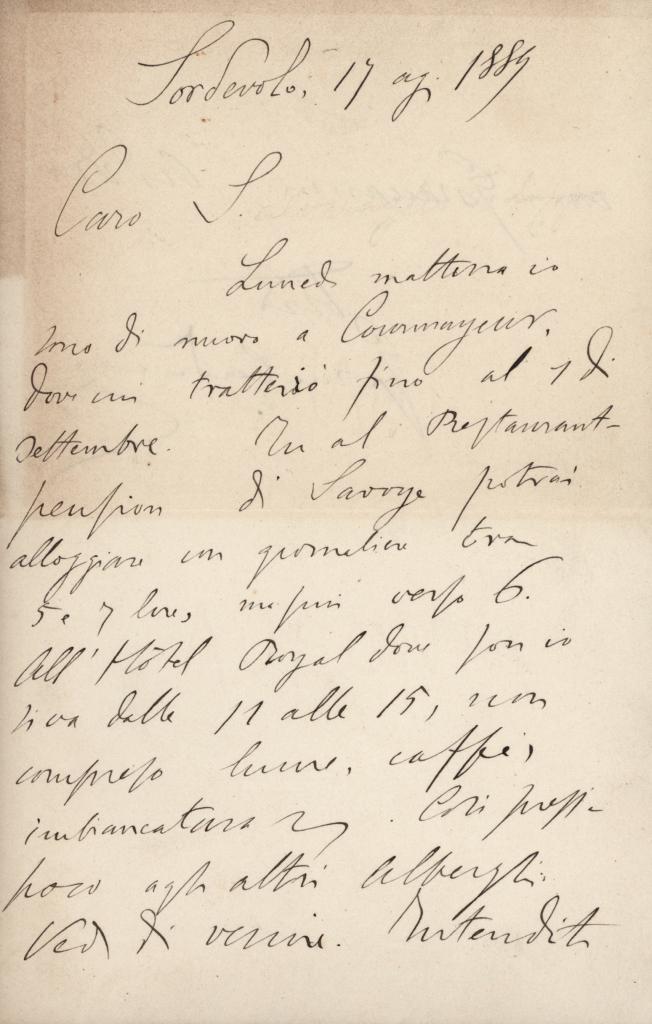 Sordevolo, 17 ag. 1889
Caro S.
Lunedì mattina io
sono di nuovo a Courmayeur,
dove mi tratterrò fino al 7 di
settembre. Tu al Restaurant-
pension di Savoye potrai
alloggiare con giornaliere tra
5 e 7 lire, ma più verso 6.
All' Hôtel Royal dove son io
si va dalle 11 alle 15, non
compreso lume, caffè,
imbiancatura . Così press-
poco agli altri alberghi.
Vedi di venire. Intenditi